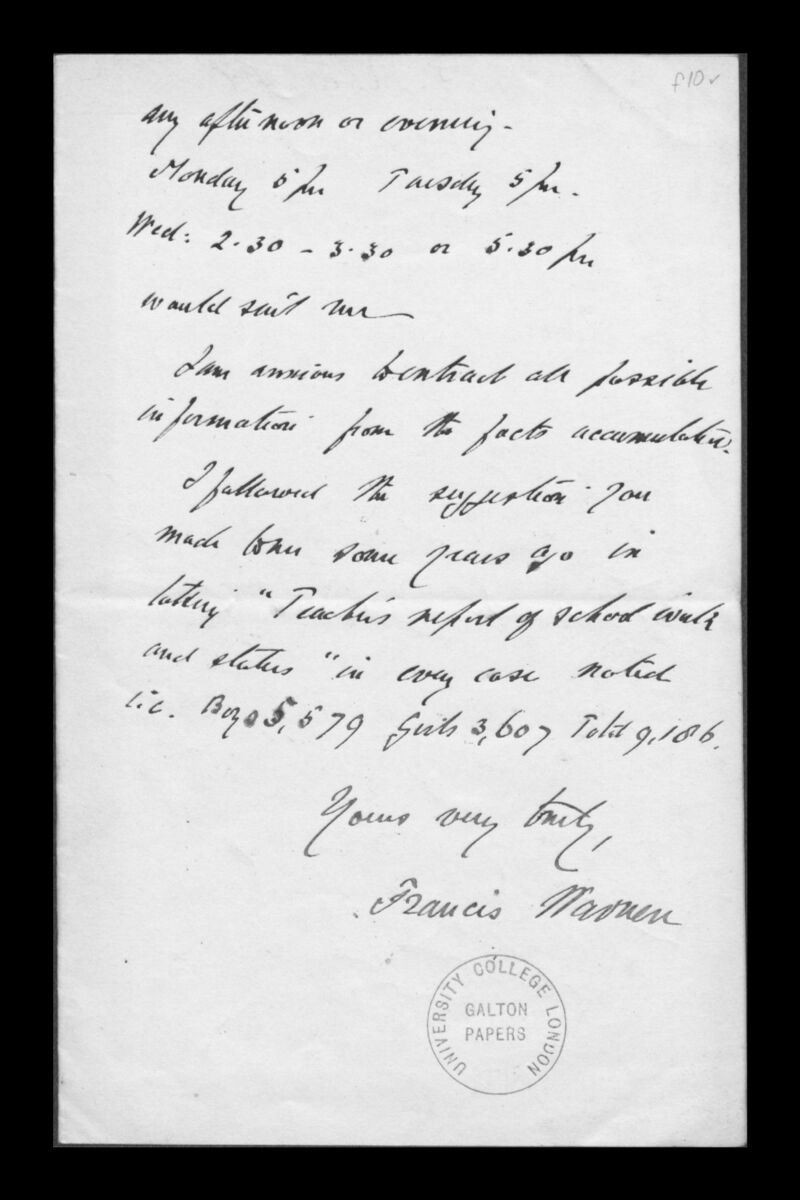 f10v
any afternoon or evening -
Monday 5 pm Tuesday 5 pm.
Wed: 2.30 - 3.30 or 5.30 pm
would suit me
I am anxious to extract all possible
information from the facts accumulated.
I followed the suggestion you
made to me some years ago in
"Teacher's report of school work
and status" in every case noted
i.e. Boys 5,579 Girls 3,607 Total 9,186.
Yours very truly,
Francis Warner
UNIVERSITY COLLEGE LONDON
GALTON
PAPERS